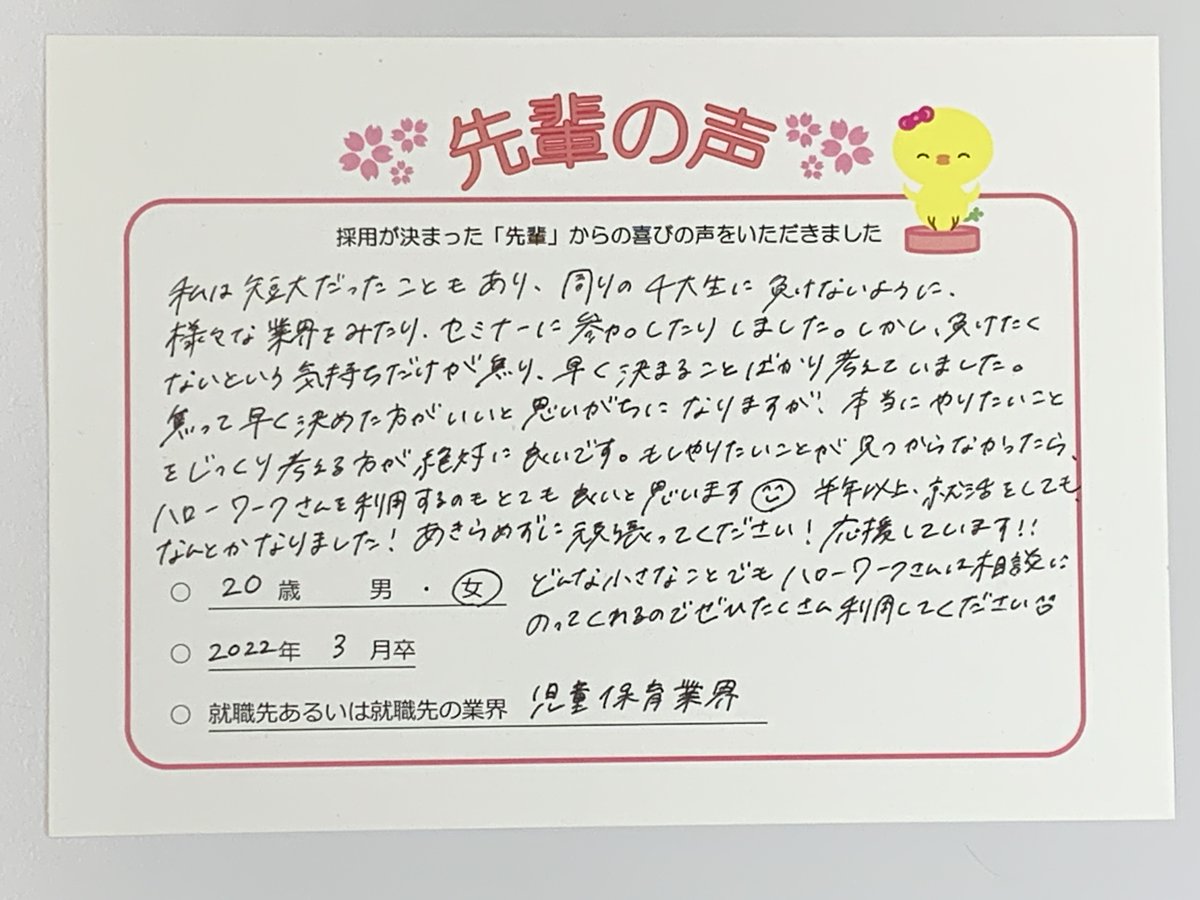 先輩の声
採用が決まった「先輩」からの喜びの声をいただきました
私は短大だったこともあり、周りの4大生に負けないように、
様々な業界をみたり、セミナーに参加したりしました。しかし、負けたく
ないという気持ちだけが焦り、早く決まることばかり考えていました。
焦って早く決めた方がいいと思いがちになりますが、本当にやりたいこと
をじっくり考える方が絶対に良いです。もしやりたいことが見つからなかったら、
ハローワークさんを利用するのもとても良いと思います 半年以上、就活をしても、
なんとかなりました!あきらめずに頑張ってください!応援しています!!
どんな小さなことでもハローワークさんは相談に
のってくれるのでぜひたくさん利用してください
○ 20歳 男・女
○ 2022年 3月卒
○ 就職先あるいは就職先の業界 児童保育業界